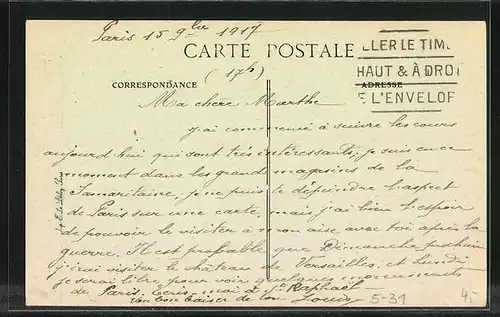 Paris 15 9bre 1917
CARTE POSTALE
LLER LE TIM
HAUT & À DROI
E L'ENVELOP
(17h)
CORRESPONDANCE
ADRESSE
Ma chère Marthe
J'ai commencé à suivre les cours
aujourd'hui qui sont très intéressants. Je suis en ce
moment dans les grands magasins de la
Samaritaine, je ne puis te dépeindre l'aspect
de Paris sur une carte, mais j'ai bien l'espoir
de pouvoir le visiter à mon aise avec toi après la
guerre. Il est probable que Dimanche prochain
j'irai visiter le château de Versailles, et Lundi
je serai libre pour voir quelques monuments
de Paris. Ecris-moi à St Raphaël
Un bon baiser de ton Louis
5-31
4,-